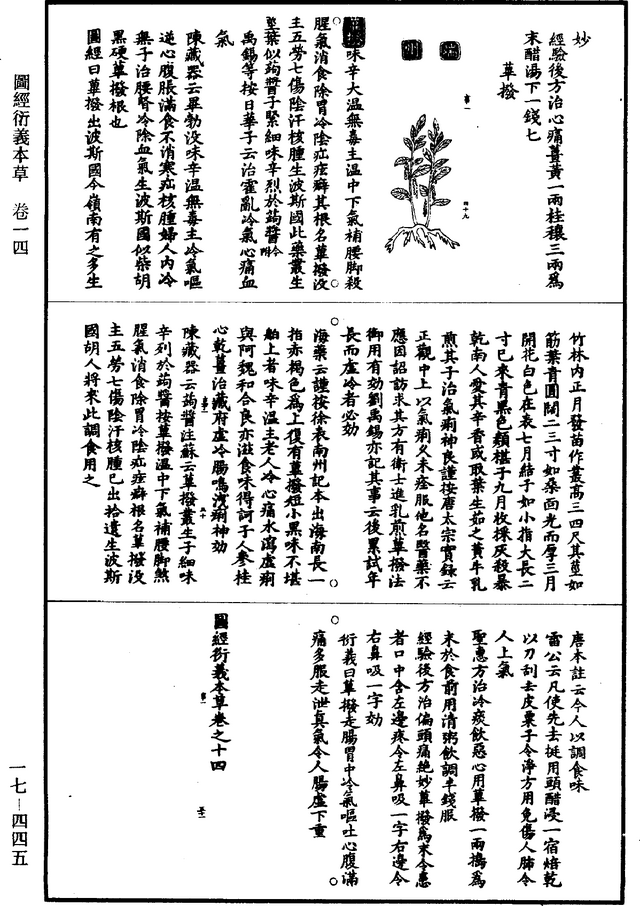 圖經衍義本草　卷一四
一七-四四五
妙
經驗後方治心痛薑黃一兩桂穰三兩為
末醋湯下一錢匕
蓽撥
味辛大温無毒主温中下氣補腰脚殺
腥氣消食除胃冷陰疝痃癖其根名蓽撥沒
主五勞七傷陰汗核腫生波斯國此藥叢生
莖葉似蒟醬子緊細味辛烈於蒟醬
禹錫等按日華子云治霍亂冷氣心痛血
氣
陳藏器云畢勃没味辛温無毒主冷氣嘔
逆心腹脹滿食不消寒疝核腫婦人内冷
無子治腰腎冷除血氣生波斯國似柴胡
黑硬蓽撥根也
圖經曰蓽撥出波斯國今嶺南有之多生
竹林内正月發苗作叢高三四尺其莖如
筯葉青圓闊二三寸如桑面光而厚三月
開花白色在表七月結子如小指大長二
寸已來青黑色類椹子九月收採灰殺暴
乾南人愛其辛香或取葉生茹之黃牛乳
煎其子治氣痢神良謹按唐太宗實録云
正觀中上以氣痢久未痊服他名醫藥不
應因詔訪求其方有衛士進乳煎蓽撥法
御用有効劉禹錫亦記其事云後累試年
長而虛冷者必効
海藥云謹按徐表南州記本出海南長一
指赤褐色為上復有蓽撥短小黑味不堪
舶上者味辛温主老人冷心痛水瀉虛痢
與阿魏和合良亦滋食味得訶子人參桂
心乾薑治藏府虛冷腸鳴洩痢神効
陳藏器云蒟醬注蘇云蓽撥叢生子細味
辛烈於蒟醬按蓽撥温中下氣補腰脚煞
腥氣消食除胃冷陰疝痃癖根名蓽撥沒
主五勞七傷陰汗核腫已出拾遺生波斯
國胡人將來此調食用之
唐本註云今人以調食味
雷公云凡使先去挺用頭醋浸一宿焙乾
以刀刮去皮粟子令淨方用免傷人肺令
人上氣
聖惠方治冷痰飲惡心用蓽撥一兩搗為
末於食前用清粥飲調半錢服
經驗後方治偏頭痛絶妙蓽撥為末令患
者口中含左邊疼令左鼻吸一字右邊令
右鼻吸一字効
衍義曰蓽撥走腸胃中冷氣嘔吐心腹滿
痛多服走泄真氣令人腸虛下重
圖經衍義本草卷之十四